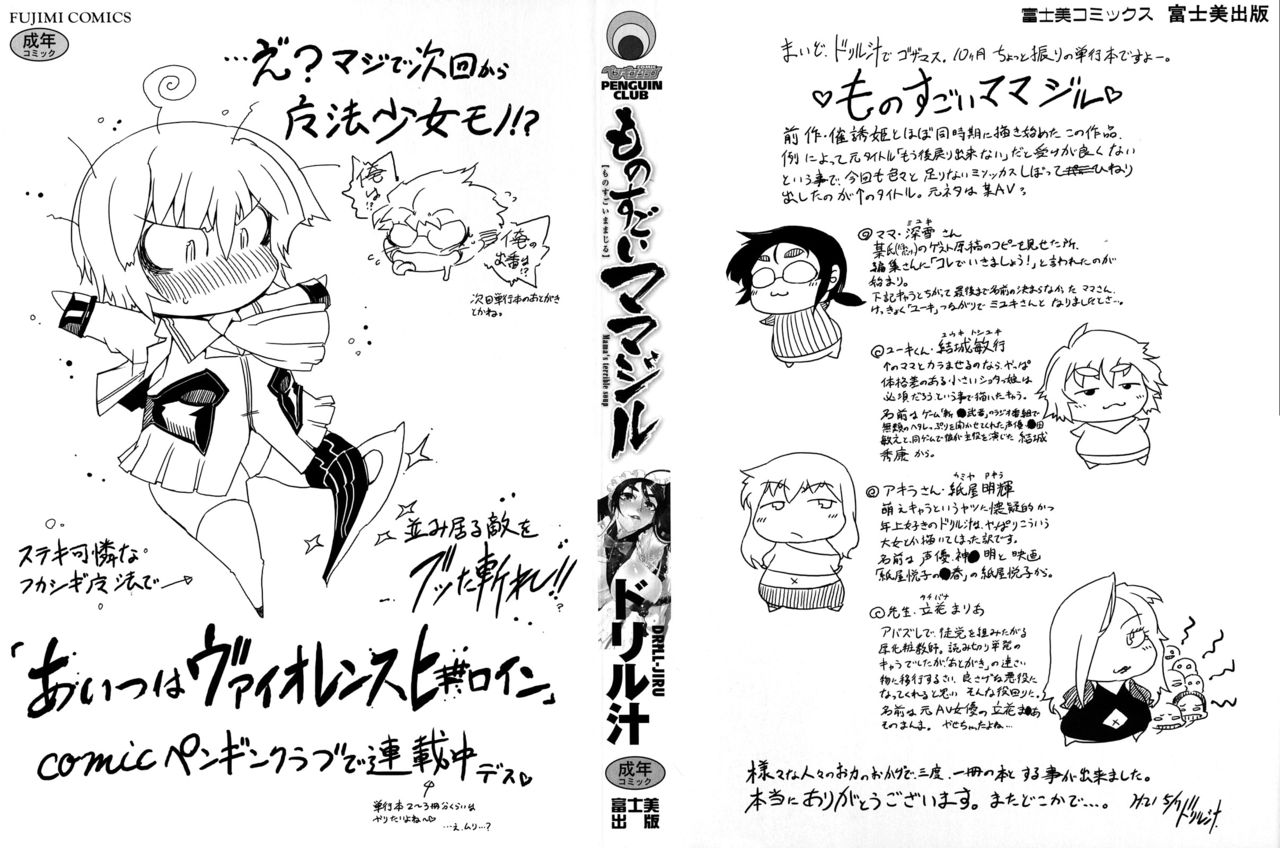 FUJIMI COMICS
成年
コミック
…え?マジで次回から
魔法少女モノ!?
俺は!?
俺の
お番は!?
次回単行本のあとがき
とかね。
ステキ可憐な
フカシギ魔法で
並み居る敵を
ブッた斬れ!!
「あいつはヴァイオレンスヒロイン」
comicペンギンクラブで連載中デス♡
単行本2〜3冊分くらいは
やりたいよね〜♡
…え、ムリ…?
COMIC
PENGUIN
CLUB
ものすごいママジル
【ものすごいままじる】
Mama's terrible soup
ドリル汁
DRILL-JIRU
成年
コミック
富士美
出版
富士美コミックス 富士美出版
まいど、ドリル汁でゴザマス。10ヶ月ちょっと振りの単行本ですよー。
♡ものすごいママジル♡
前作・催誘姫とほぼ同時期に描き始めたこの作品、
例によって元タイトル「もう後戻り出来ない」だと受けが良くない
という事で、今回も色々と足りないミソッカスしぼってひねり
出したのが↑のタイトル。元ネタは某AV
ミユキ
◎ママ・深雪さん
某氏のゲスト原稿のコピーを見せた所、
編集さんに「コレでいきましょう!」と言われたのが
始まり。
下記キャラとちがって最後まで名前の決まらなかったママさん、
けっきょく「ユーキ」つながりでミユキさんとなりましたとさ…。
ユウキ トシユキ
◎ユーキくん・結城敏行
↑のママとカラませるのなら、やっぱ
体格差のある小さいショタっ娘は
必須だろうという事で描いたキャラ。
名前はゲーム「斬●武者」のラジオ番組で
無類のヘタレっぷりを聞かせてくれた声優・●田
敏えと、同ゲームで彼が主役を演じた結城
秀康から。
カミヤ アキラ
◎アキラさん・紙屋明輝
萌えキャラというヤツに懐疑的かつ
年上好きのドリル汁は、やっぱりこういう
大女しか描いてしまった訳です。
名前は声優・神●明と映画
「紙屋悦子の●春」の紙屋悦子から。
タチバナ
◎先生・立花まりあ
アバズレで、徒党を組みたがる
厚化粧教師。読み切り単発の
キャラでしたが「あとがき」の速さい
物に移行するさい、良さげな悪役に
なってくれると思い そんな役回りに。
名前は元AV女優の立花ま●あ
そのまんま。やせちゃったよね…
様々な人々のお力のおかげで、三度、一冊の本とする事が出来ました。
本当にありがとうございます。またどこかで…。
ドリル汁